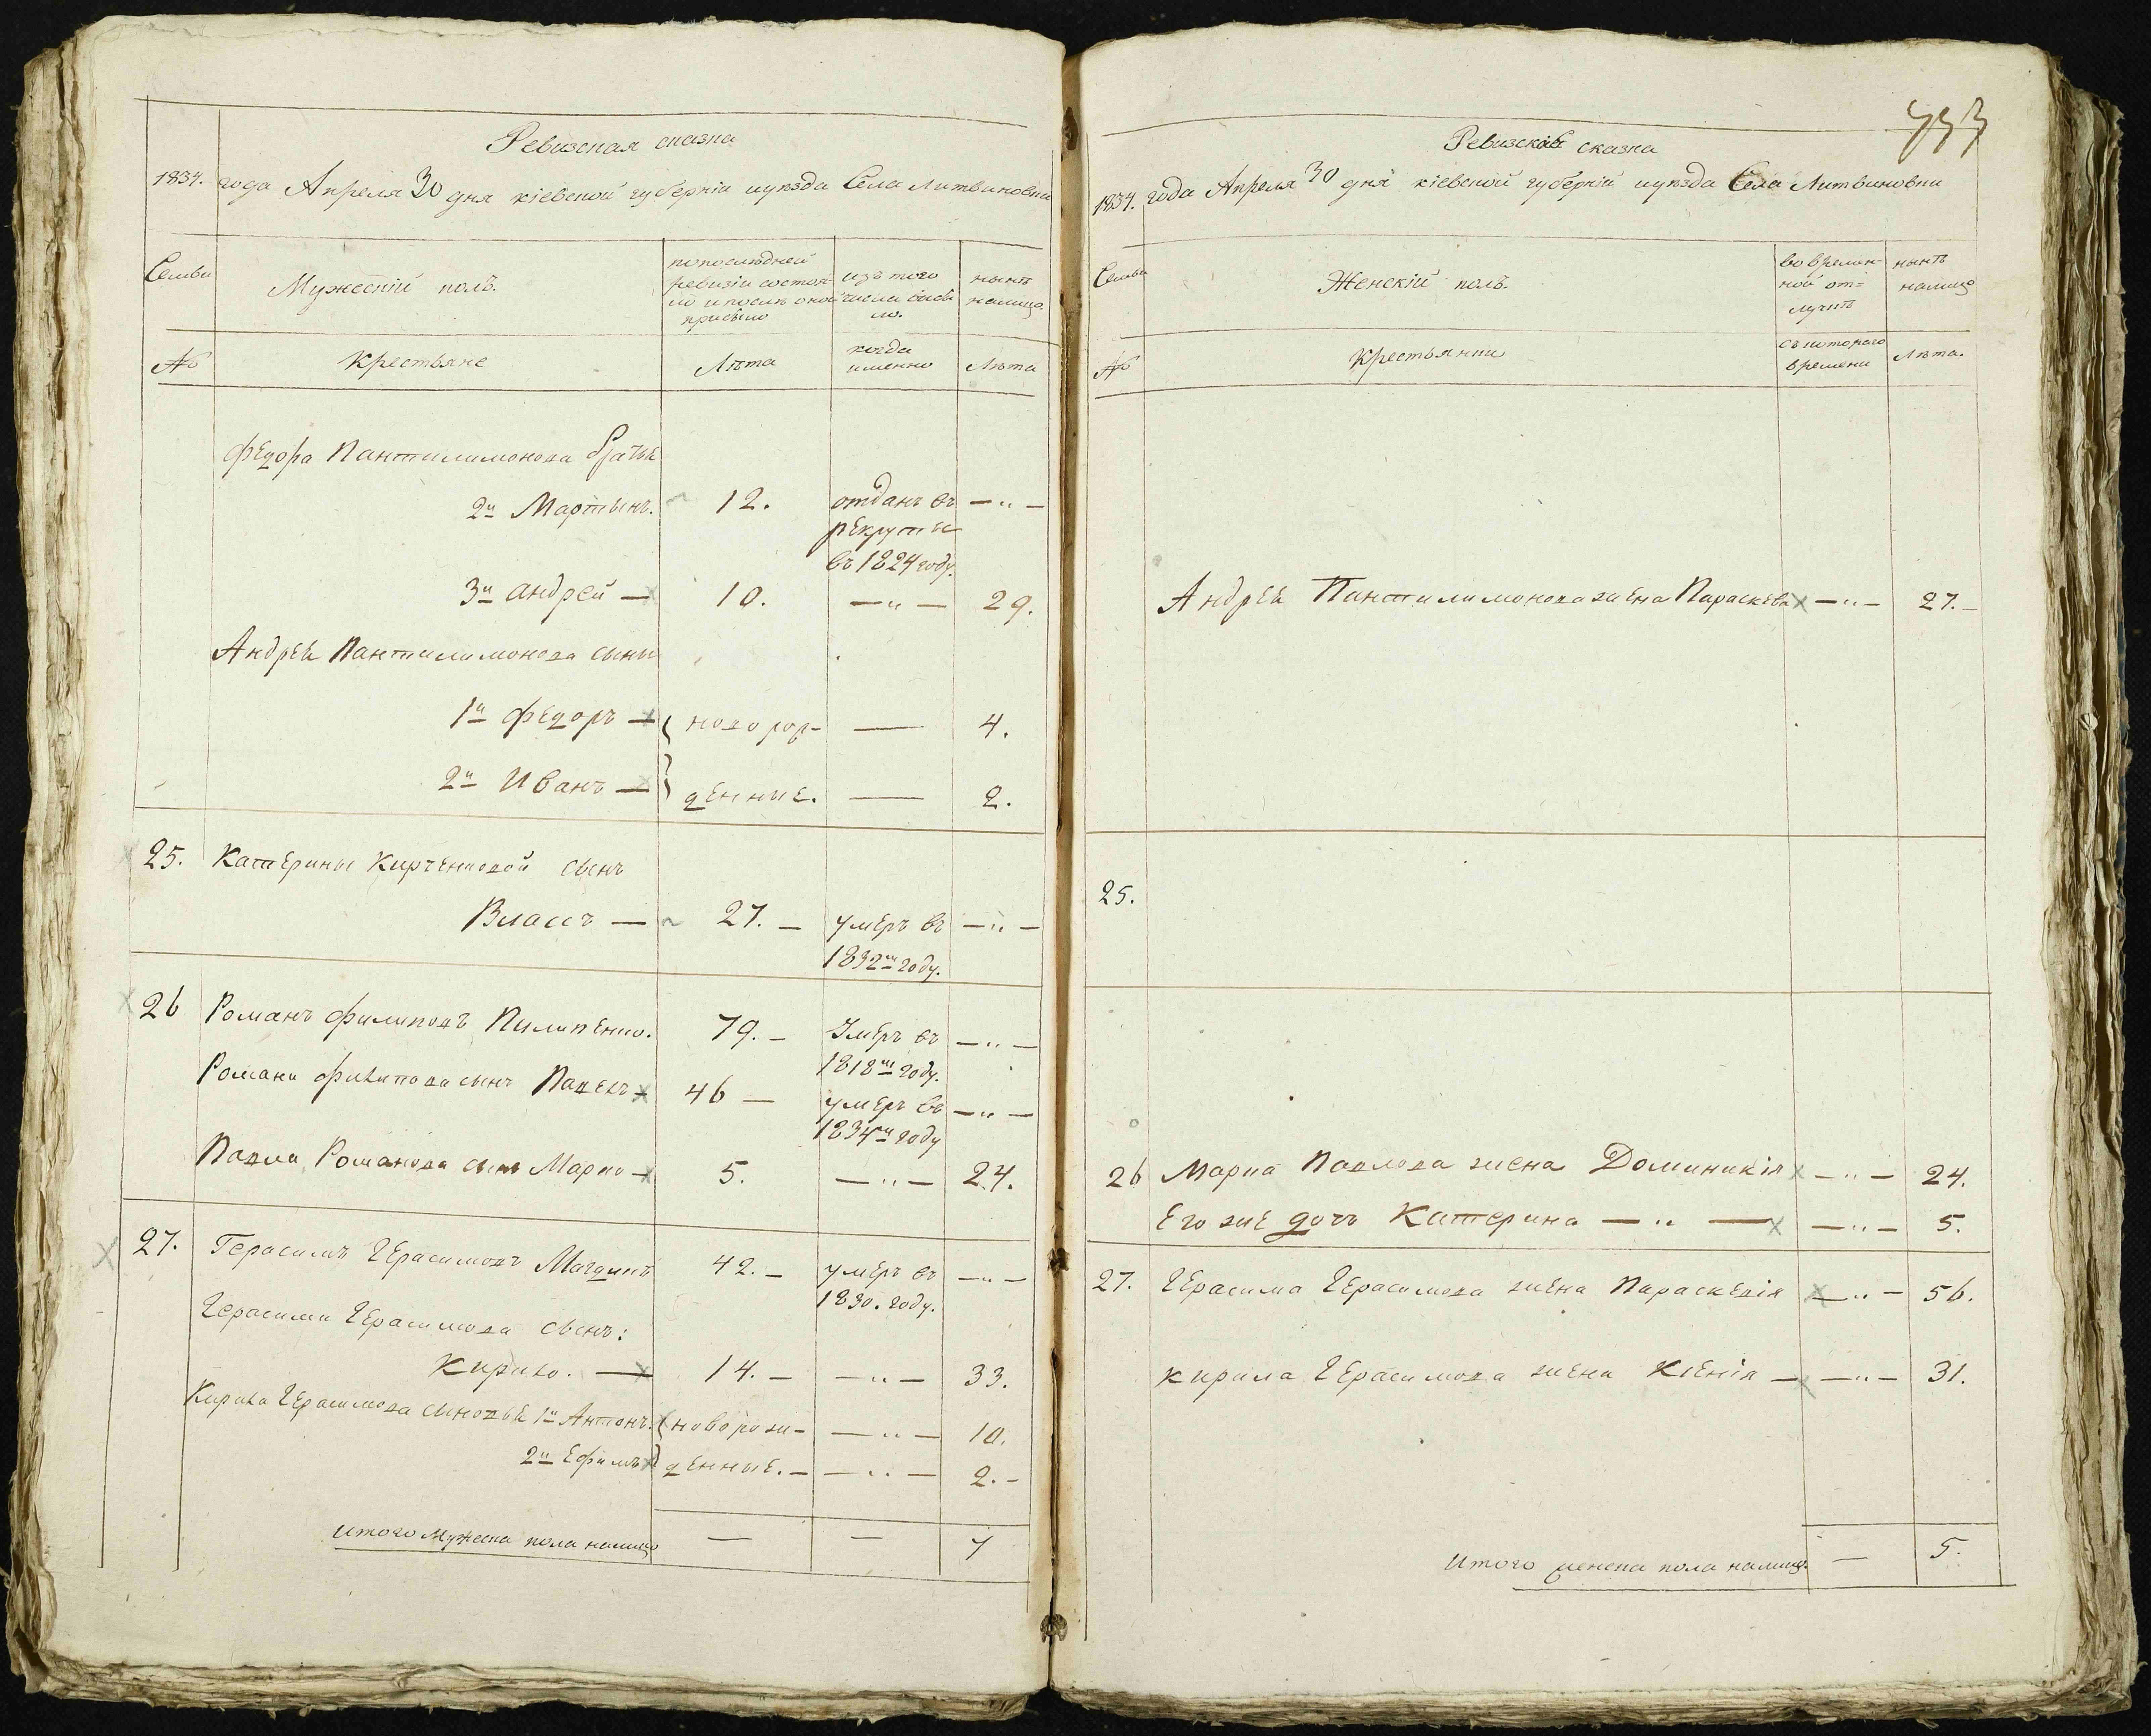 Ревизская сказка
1834. года Апреля 30 дня кіевской губерніи иуезда Села Литвиновки
Семьи
Мужескій полъ.
попоследней
ревизіи состоя-
ло и после оной
прибыло
изъ того
числа выбы
ло.
ныне
налицо.
№
Крестьяне
Лета
когда
именно
Лета
Федора Пантилимонова братья
2й Мартынъ. 12. отданъ въ — " —
рекруты
въ 1824 году.
3й Андрей — 10. — " — 29.
Андрея Пантилимонова сыны
1й Федоръ — новорож- — 4.
2й Иванъ — денные. — 2.
25. Катерины Кирченковой сынъ
Власъ — 27. — умеръ въ — " —
1832м году.
26 Романъ Филиповъ Пилипенко. 79. — Умеръ въ — " —
1818м году.
Романа Филипова сынъ Павелъ 46 — умеръ въ — " —
1834м году
Павла Романова сынъ Марко — 5. — " — 24.
27. Герасимъ Герасимовъ 42. — умеръ въ — " —
1830. году.
Герасима Герасимова сынъ:
Кирило. — 14. — — " — 33.
Кирила Герасимова сыновья 1й Антонъ. новорож- — " — 10.
2й Ефимъ денные. — — " — 2. —
Итого Мужеска пола налицо — — 7
Ревизская сказка
1834. года Апреля 30 дня кіевской губерніи иуезда Села Литвиновки
Семьи
Женскій полъ.
во времен-
ной от=
лучке
ныне
налицо
№
Крестьянки
съ котораго
времени
Лета.
Андрея Пантилимонова жена Параскева — " — 27. —
25.
26 Марка Павлова жена Доминикія — " — 24.
Его же дочь Катерина — " — — " — 5.
27. Герасима Герасимова жена Параскевія — " — 56.
Кирила Герасимова жена Ксенія — — " — 31.
Итого женска пола налицо. — 5.